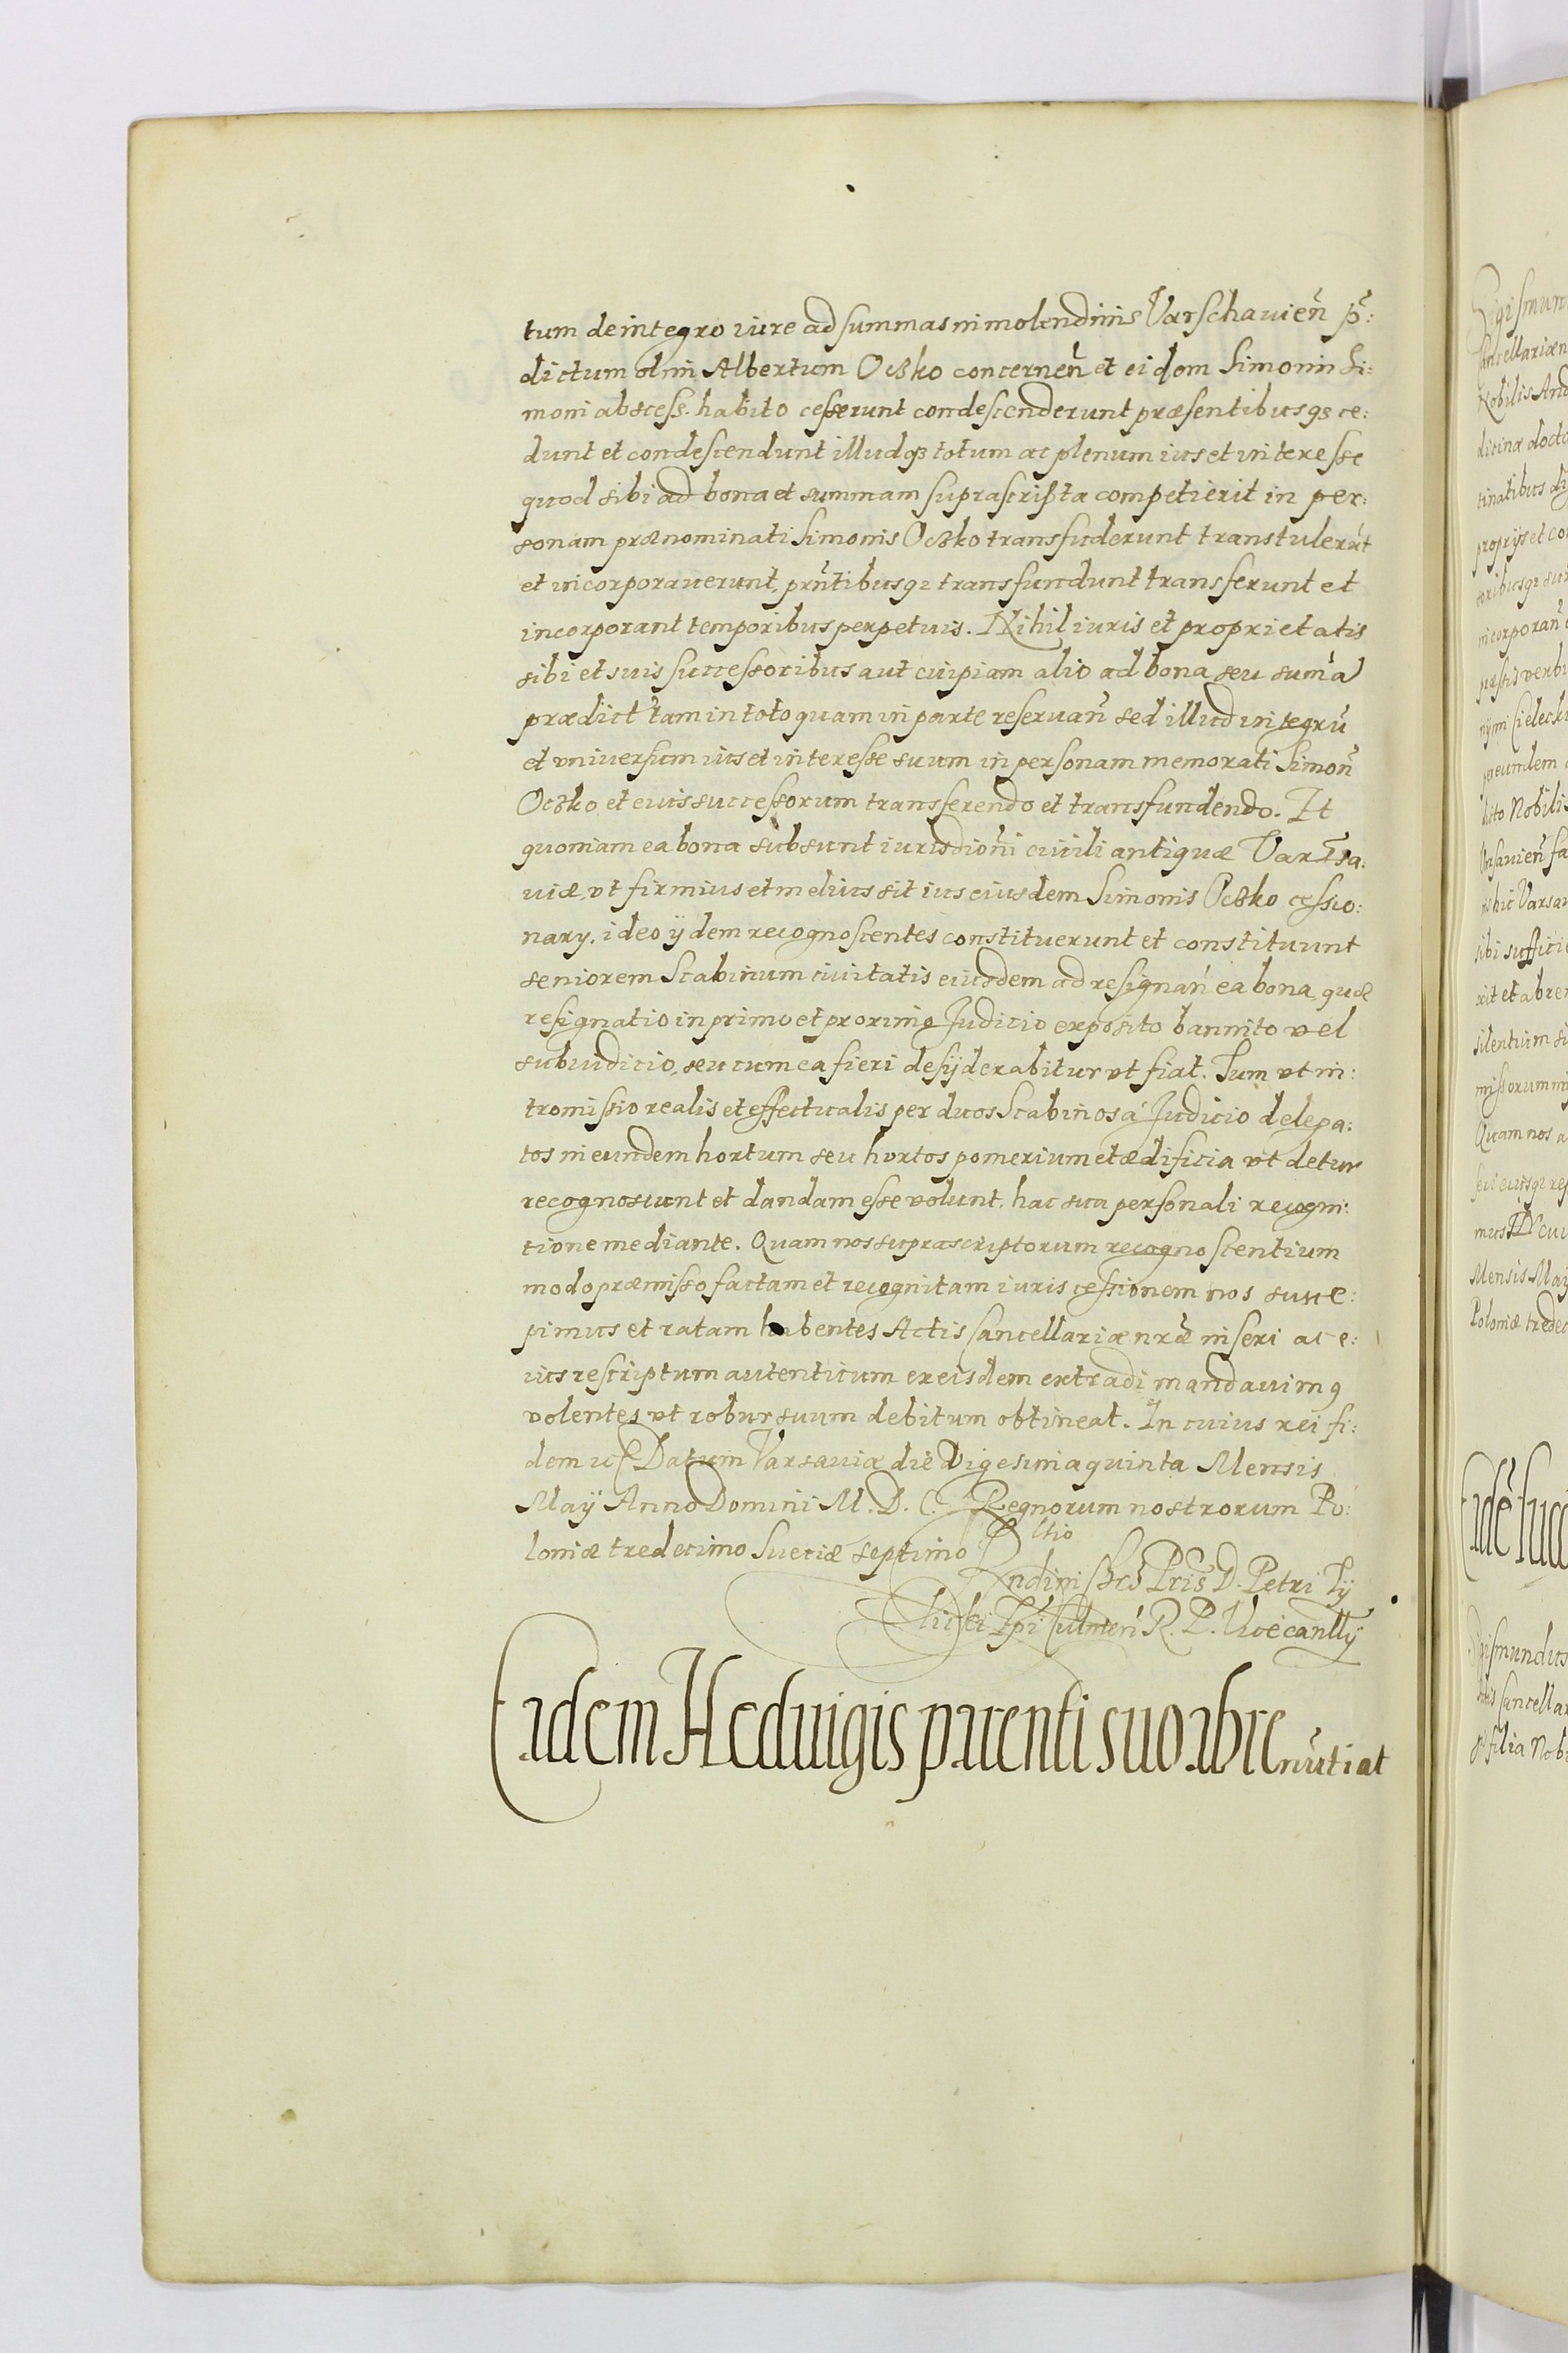 tum de integro iure ad summas in molendinis Varschauien̄ p̄:
dictum olim Albertum Oczko concernen̄ et eidem Simonin Si:
moni abscess. habito cesserunt condescenderunt præsentibusqȝ ce:
dunt et condescendunt illudqȝ totum ac plenum ius et interesse
quod sibi ad bona et summam suprascripta competierit in per:
sonam prænominati Simonis Oczko transfuderunt transtulerūt
et incorporaverunt, prn̄tibusqȝ transfundunt transferunt et
incorporant temporibus perpetuis. Nihil iuris et proprietatis
sibi et suis successoribus aut cuipiam alio ad bona seu sum̄a
prædict tam in toto quam in parte reservan̄ sed illud integrū
et universum ius et interesse suum in personam memorati Simon̄
Oczko et eius successorum transferendo et transfundendo. Et
quoniam ea bona subsunt iurisdioñi civili antiquæ Varssa:
viæ, vt firmius et melius sit ius eiusdem Simonis Oczko cessio:
nary. ideo ijdem recognoscentes constituerunt et constituunt
seniorem Scabinum civitatis eiusdem ad resignan̄ ea bona, quæ
resignatio in primo et proximo Judicio exposito bannito vel
subiudicio, seu cum ea fieri desyderabitur vt fiat. Tum vt in:
tromissio realis et effectualis per duos Scabinos á Judicio delega:
tos in eundem hortum seu hortos pomerium et ædificia vt detur
recognoscunt et dandam esse volunt. hac sua personali recogni:
tione mediante. Quam nos suprascriptorum recognoscentium
modo præmisso factam et recognitam iuris cessionem nos susce:
pimus et ratam habentes Actis Cancellariæ nræ̃ inseri ac e:
ius rescriptum autenticum ex eisdem extradi mandauimꝰ
volentes vt robur suum debitum obtineat. In cuius rei fi:
dem Datum Varsaviæ die Vigesima quinta Mensis
Maij Anno Domini M. D. C. Regnorum nostrorum Po:
loniæ tredecimo Sueciæ septimo
Petri Ty
licki Culmen̄ R. P. Vicecanllij
Eadem Heduigis parenti suo abrenūtiat